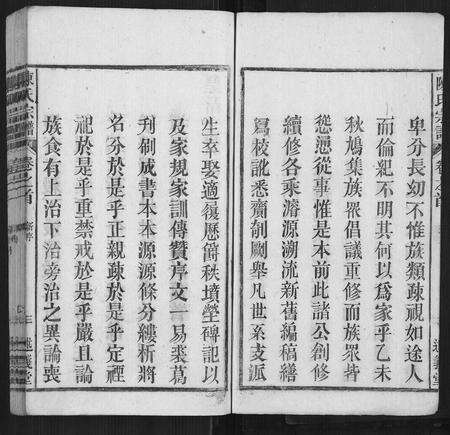 陳氏宗譜
卷之首
卑分長幼不惟族類疎視如途人
而倫紀不明其何以爲家乎乙未
秋鳩集族眾倡議重修而族眾皆
慫慂從事惟是本前此諸公創修
續修各乘濬源溯流新舊編稿繕
寫校訛悉齎剞劂舉凡世系支派
生卒娶適履歷爵秩墳塋碑記以
及家規家訓傳贊序文一易棗葛
刋刷成書本本源源條分縷析將
名分於是乎正親疎於是乎定禋
祀於是乎重禁戒於是乎嚴且論
族食有上治下治旁治之異論喪
陳氏宗譜
卷之首
新序
三
述義堂